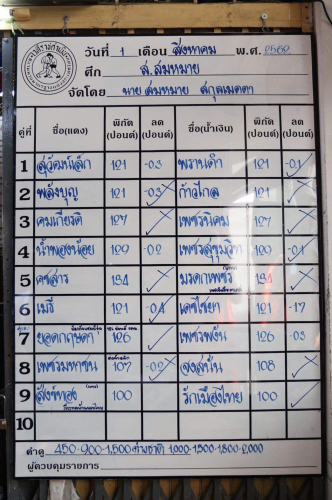 วันที่ 1 เดือน สิงหาคม พ.ศ. 2562
ศึก ส.สมหมาย
จัดโดย นาย สมหมาย สกุลเมตตา
คู่ที่ ชื่อ(แดง) พิกัด (ปอนด์) ลด (ปอนด์) ชื่อ(น้ำเงิน) พิกัด (ปอนด์) ลด (ปอนด์)
1 สุวัฒน์เล็ก 121 -0.3 พรานดำ 121 -0.1
2 พลังบุญ 121 -0.3 ก้าวไกล 121
3 คมเกียรติ 127 เพชรนิคม 127
4 น้ำพองน้อย 120 -0.2 120 -0.1
5 คชสาร 134 มรดกเพชร 134
6 เมธี 121 -0.4 เดชไชยา 121 -1.7
7 ยอดกฤษดา 126 เพชรพนัน 126 -0.3
8 เพชรมหาชน 107 -0.2 108
9 สังข์ทอง 100 รักเมืองไทย 100
10
ค่าดู 450-900-1,500 ต่างชาติ 1,000-1,500-1,800-2,000
ผู้ควบคุมรายการ